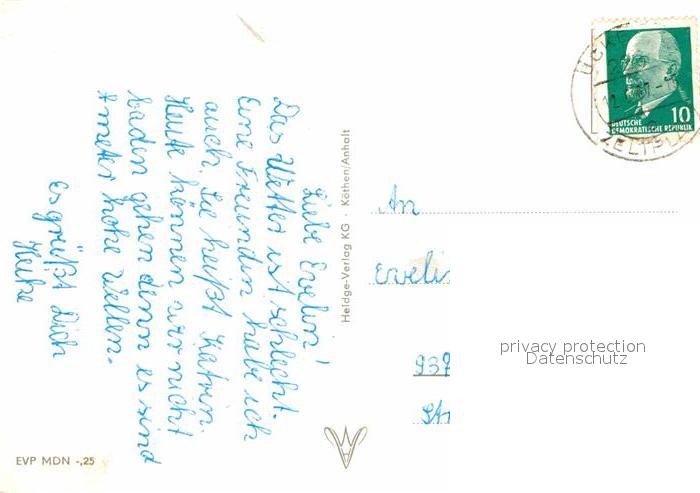 Liebe Evelin!
Das Wetter ist schlecht.
Eine Freundin habe ich
auch. Sie heißt Katrin.
Heute können wir nicht
baden gehen denn es sind
4 meter hohe Wellen.
Es grüßt Dich
Heike
Heldge-Verlag KG · Köthen/Anhalt
EVP MDN -,25
10
DEUTSCHE
DEMOKRATISCHE REPUBLIK
An
Eveli
937
privacy protection
Datenschutz